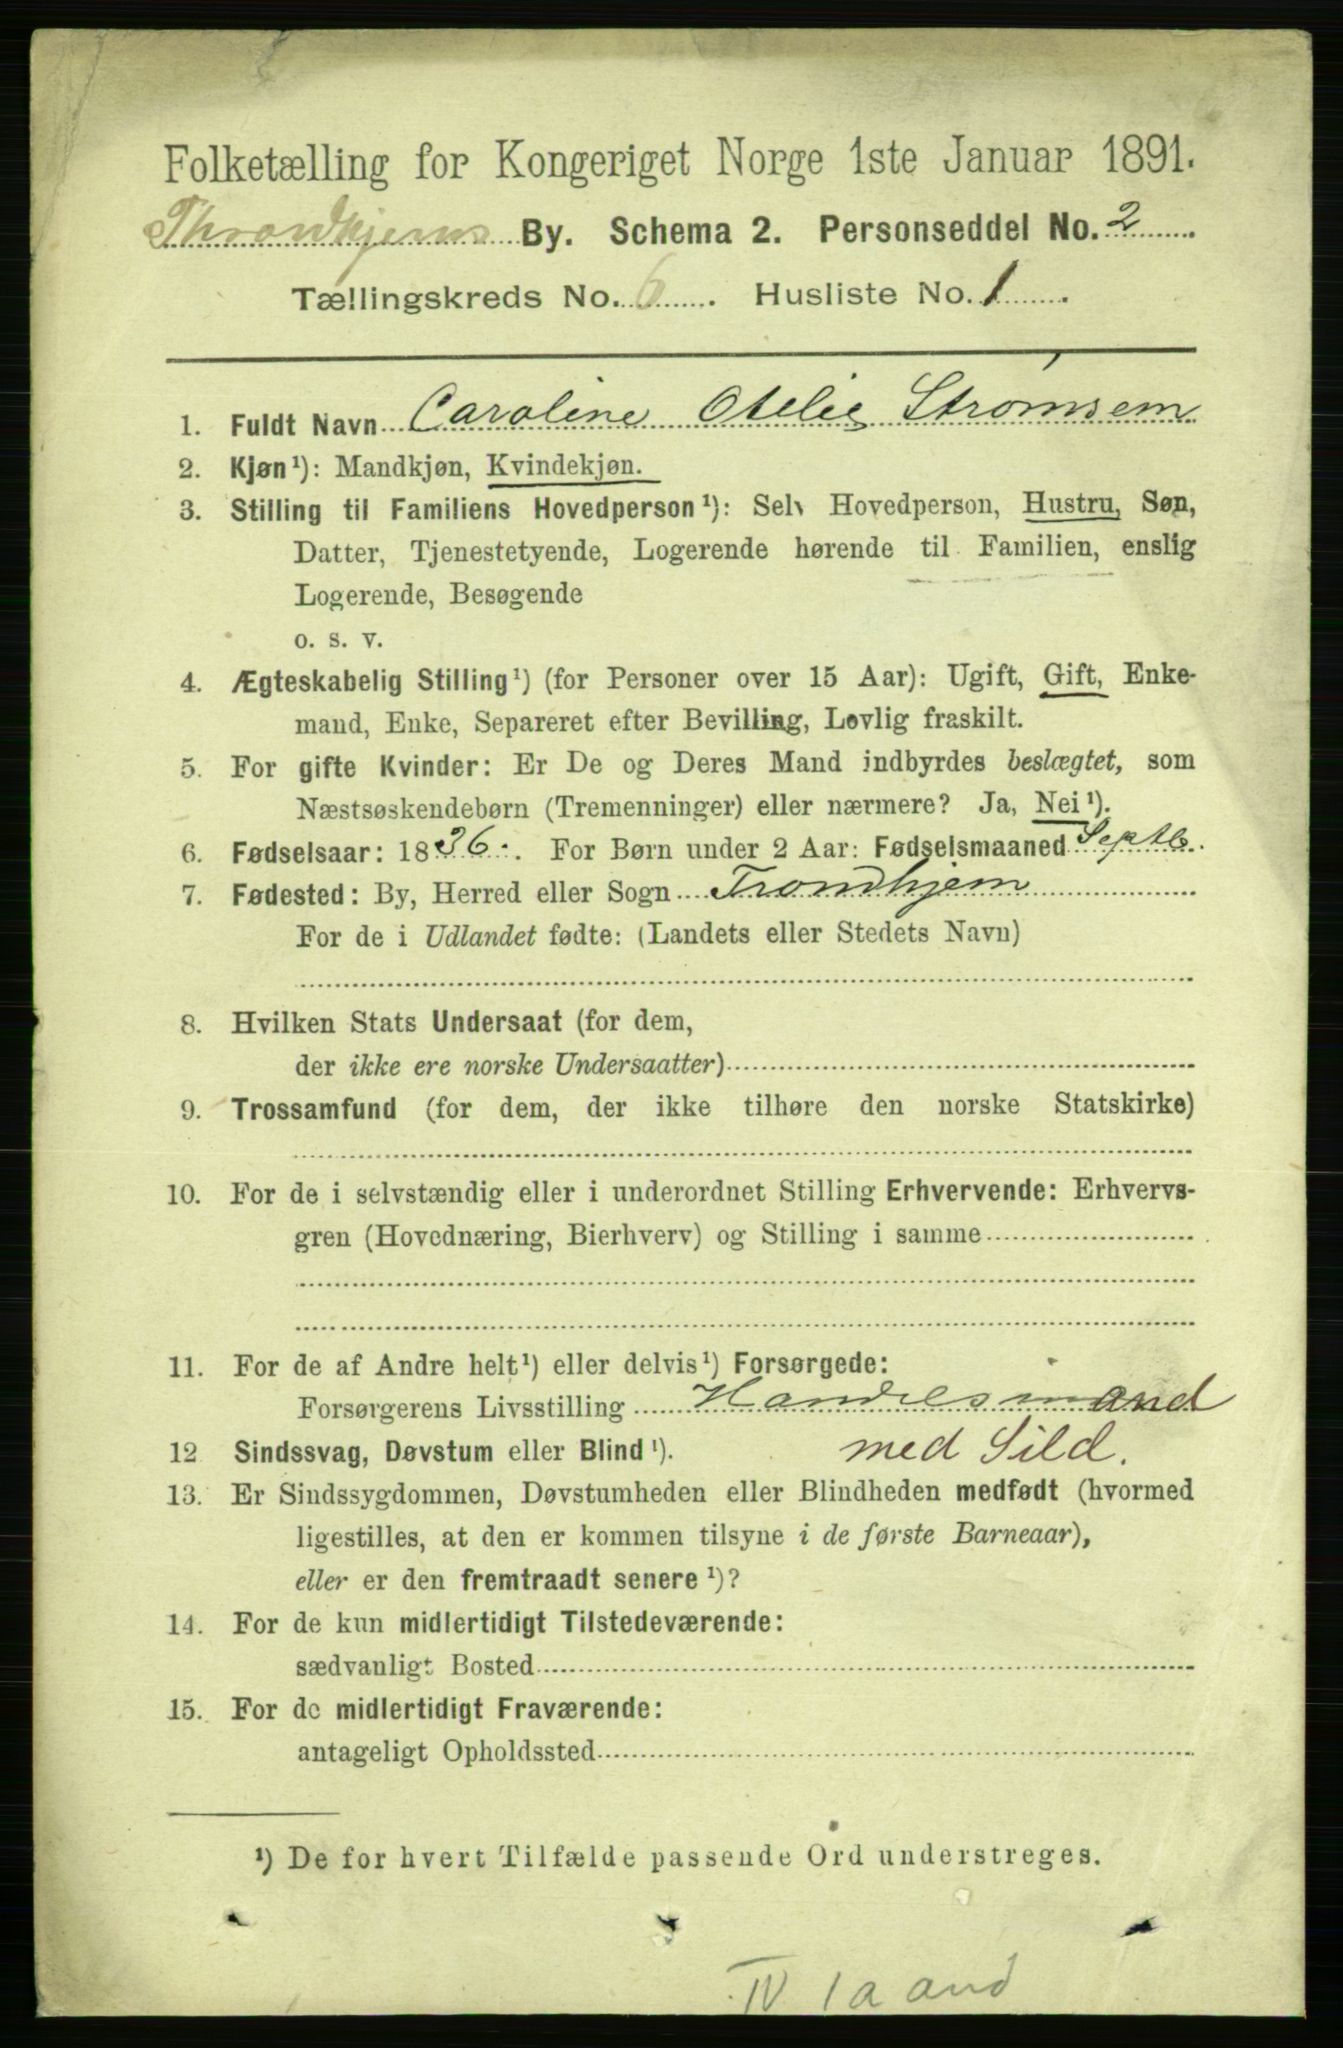 Folketælling for Kongeriget Norge 1ste Januar 1891.
Throndhjems By. Schema 2. Personseddel No. 2
Tællingskreds No. 6. Husliste No. 1.
1. Fuldt Navn Caroline Otelie Strømsem
2. Kjøn¹): Mandkjøn, Kvindekjøn.
3. Stilling til Familiens Hovedperson¹): Selv Hovedperson, Hustru, Søn,
Datter, Tjenestetyende, Logerende hørende til Familien, enslig
Logerende, Besøgende
o. s. v.
4. Ægteskabelig Stilling¹) (for Personer over 15 Aar): Ugift, Gift, Enke-
mand, Enke, Separeret efter Bevilling, Lovlig fraskilt.
5. For gifte Kvinder: Er De og Deres Mand indbyrdes beslægtet, som
Næstsøskendebørn (Tremenninger) eller nærmere? Ja, Nei¹).
6. Fødselsaar: 1836. For Børn under 2 Aar: Fødselsmaaned Septb.
7. Fødested: By, Herred eller Sogn Trondhjem
For de i Udlandet fødte: (Landets eller Stedets Navn)
8. Hvilken Stats Undersaat (for dem,
der ikke ere norske Undersaatter)
9. Trossamfund (for dem, der ikke tilhøre den norske Statskirke)
10. For de i selvstændig eller i underordnet Stilling Erhvervende: Erhvervs-
gren (Hovednæring, Bierhverv) og Stilling i samme
11. For de af Andre helt¹) eller delvis¹) Forsørgede:
Forsørgerens Livsstilling Handelsmand
12 Sindssvag, Døvstum eller Blind¹). med Sild.
13. Er Sindssygdommen, Døvstumheden eller Blindheden medfødt (hvormed
ligestilles, at den er kommen tilsyne i de første Barneaar),
eller er den fremtraadt senere¹)?
14. For de kun midlertidigt Tilstedeværende:
sædvanligt Bosted
15. For de midlertidigt Fraværende:
antageligt Opholdssted
¹) De for hvert Tilfælde passende Ord understreges.
IV 1a and